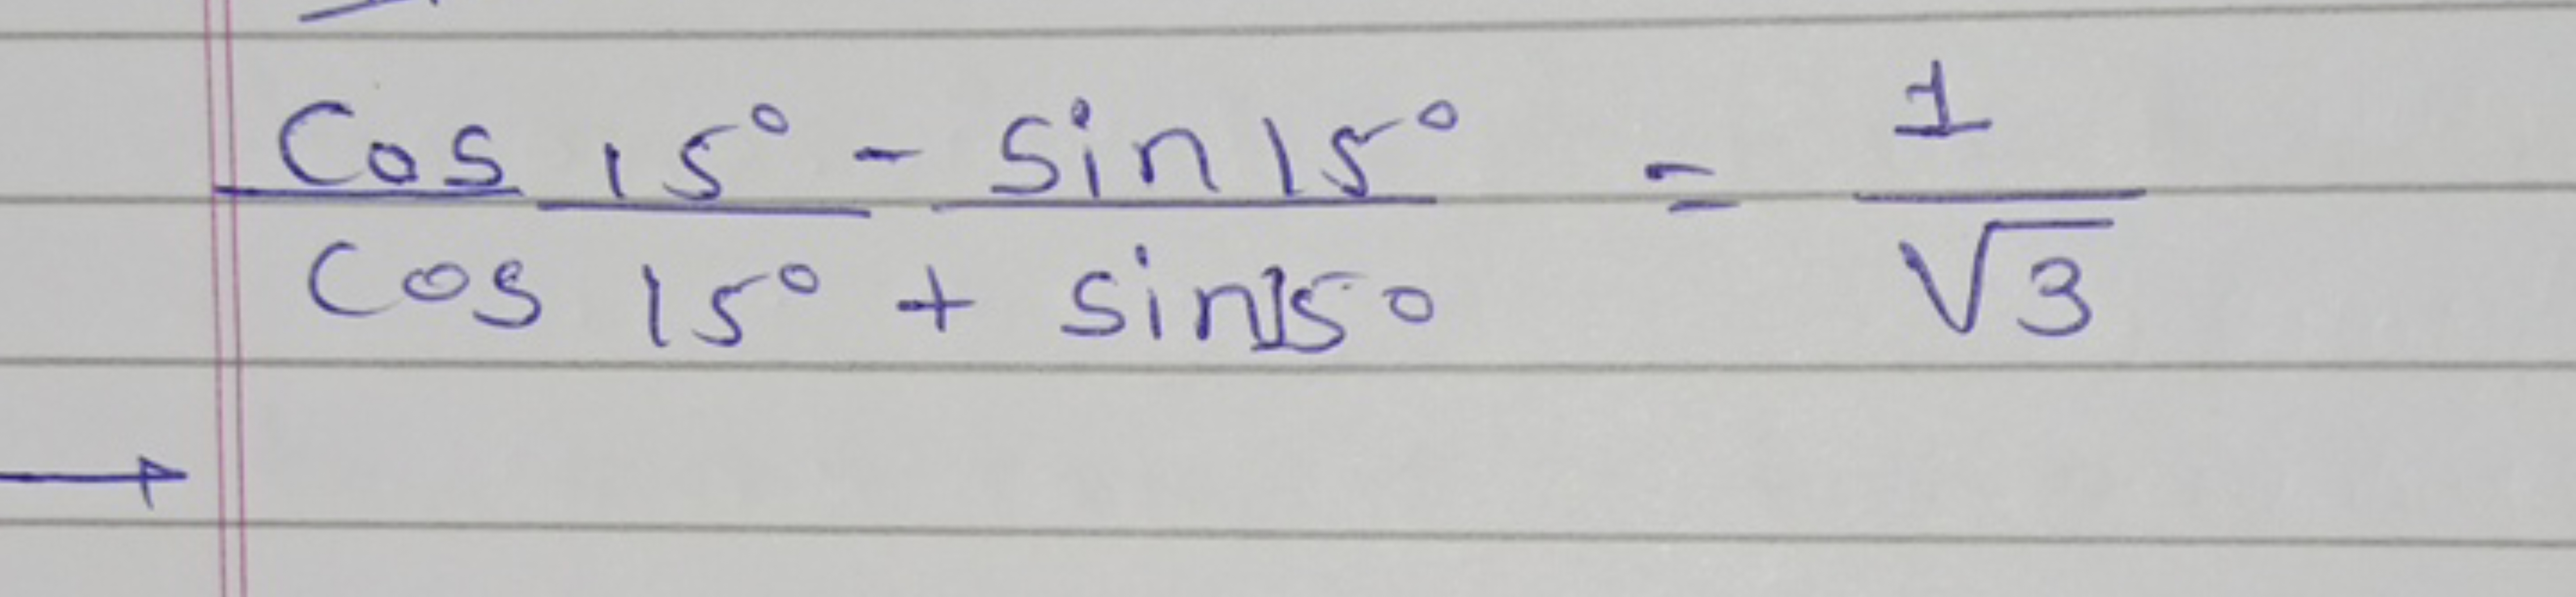 Cos 15° - Sin 15° = 1
Cos 15° + Sin 15° √3